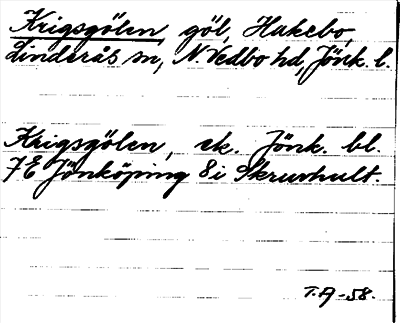 Krigsgölen, göl, Hakebo,
Linderås sn, N. Vedbo hd, Jönk. l.
Krigsgölen, ek. Jönk. bl.
7E Jönköping 8i Skruvhult.
T.A-58.